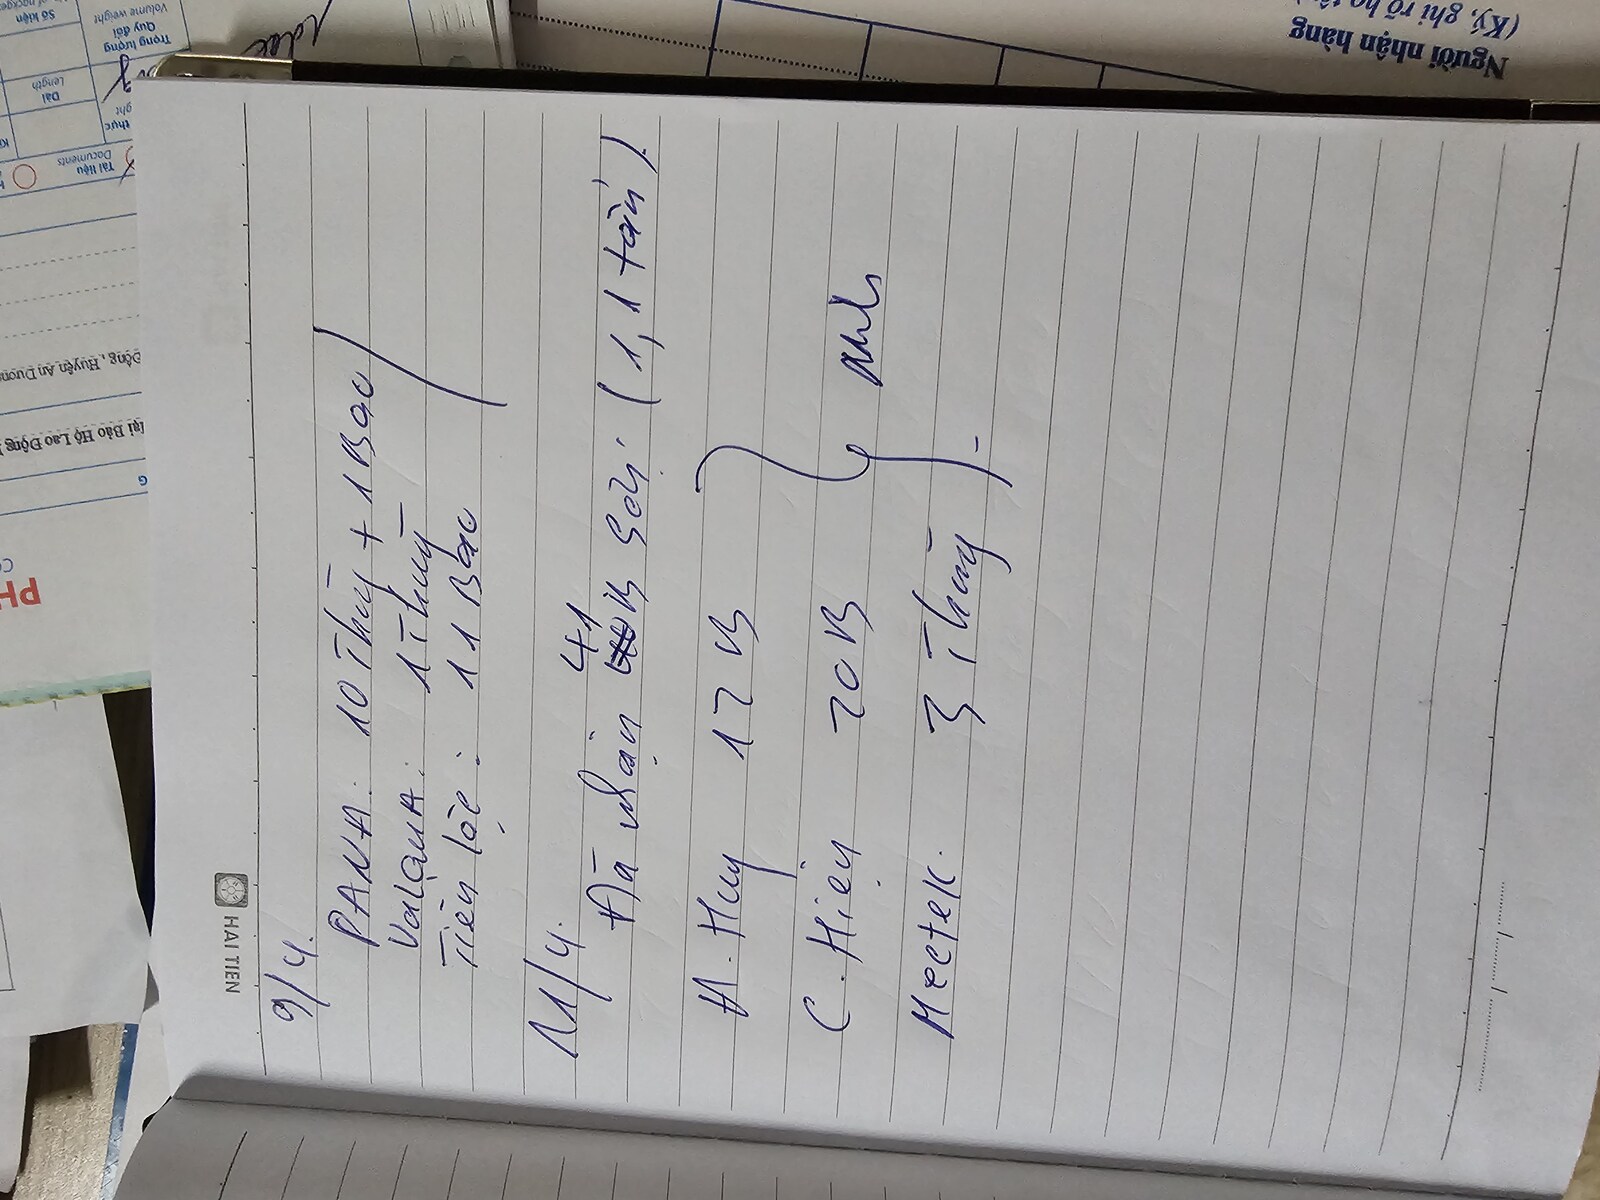 HAI TIEN
9/4.
PANA: 10 Thùng + 1 Bao
1 Thùng
Tiến Lộc: 11 Bao
11/4.
41
Đã nhận B Sơn: (1,1 tấn).
A. Huy 17 B
C. Hiện 20B
Meetek. 3 Thùng
Người nhận hàng
(Ký, ghi rõ họ tên
Số kiện
Trọng lượng
Quy đổi
Volume weight
Dài
Length
thực
Tài liệu
Documents
Đông, Huyện An Dương
Đại Bảo Hộ Lao Động
PH